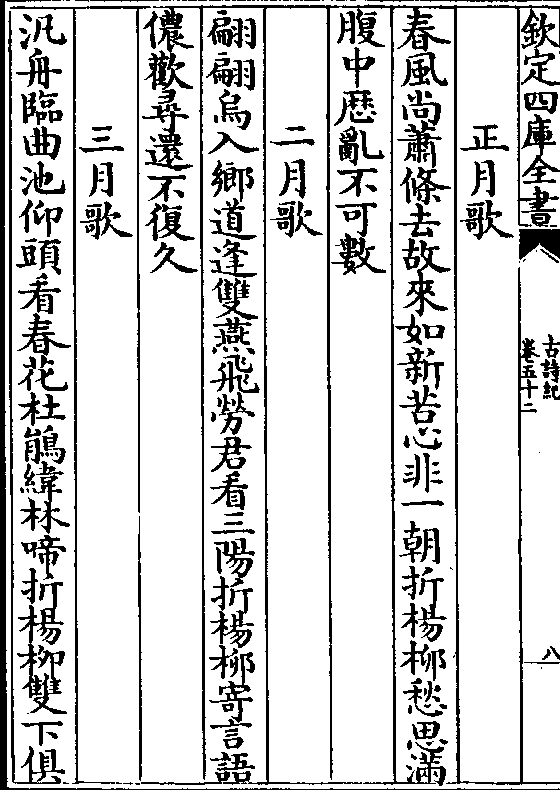 欽定四庫全書
古詩紀
卷五十二
八
正月歌
春風尚蕭條去故來如新苦心非一朝折楊柳愁思滿
腹中歴亂不可數
二月歌
翩翩烏入鄉道逢雙燕飛勞君看三陽折楊柳寄言語
儂歡尋還不復久
三月歌
汎舟臨曲池仰頭看春花杜鵑緯林啼折楊柳雙下俱